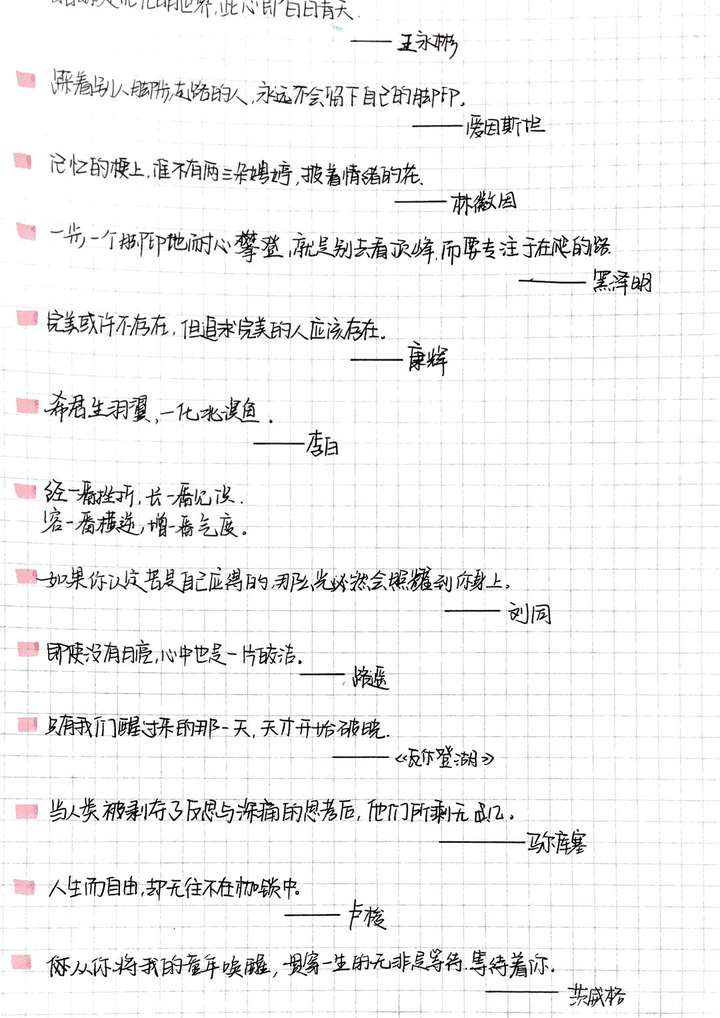 世界,此心即白日青天.
——王永彬
踩着别人脚步走路的人,永远不会留下自己的脚印。
——爱因斯坦
记忆的梗上,谁不有两三朵娉婷,披着情绪的花.
——林徽因
一步一个脚印地耐心攀登,就是别去看顶峰,而要专注于在爬的路.
——黑泽明
完美或许不存在,但追求完美的人应该存在。
——康辉
希君生羽翼,一化北溟鱼.
——李白
经一番挫折,长一番见识.
容一番横逆,增一番气度。
如果你认定苦是自己应得的,那么光必然会照耀到你身上。
——刘同
即使没有月亮,心中也是一片皎洁。
——路遥
只有我们醒过来的那一天,天才开始破晓.
——《瓦尔登湖》
当人类被剥夺了反思与深痛的思考后,他们所剩无几。
——马尔库塞
人生而自由,却无往不在枷锁中。
——卢梭
从你将我的童年唤醒,贯穿一生的无非是等待.等待着你.
——茨威格